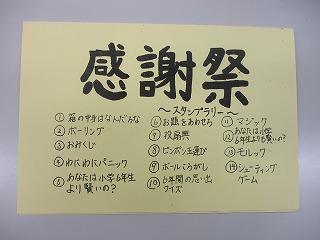 感謝祭
～スタンプラリー～
① 箱の中身はなんだろな
② ボーリング
③ おみくじ
④ わにわにパニック
⑤ あなたは小学6年生
より賢いの?
⑥ お題をあわせろ
⑦ 投扇興
⑧ ピンポン玉運び
⑨ ボールころがし
⑩ 6年間の思い出
クイズ
⑪ マジック
⑫ あなたは小学
6年生より賢いの?
⑬ モルック
⑭ シューティング
ゲーム